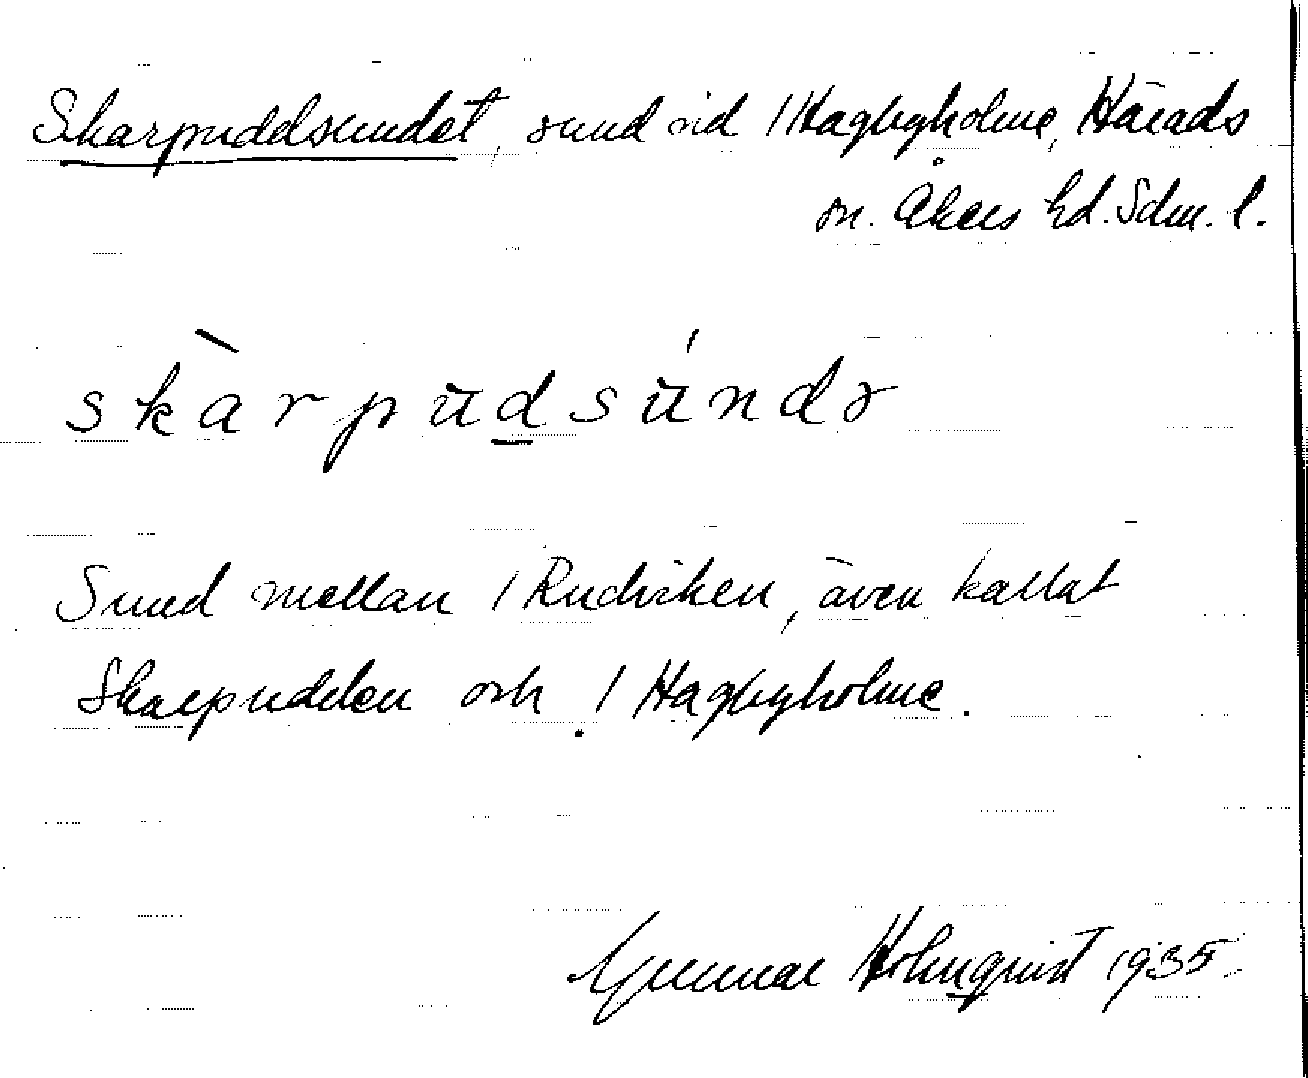 Skarpuddsundet, sund vid /Hagbyholme, Härads
sn. Åkers hd. Sdm. l.
skàrpu̅dsúndə
Sund mellan /Rudviken, även kallat
Skarpudden och / Hagbyholme.
Gunnar Holmquist 1935.